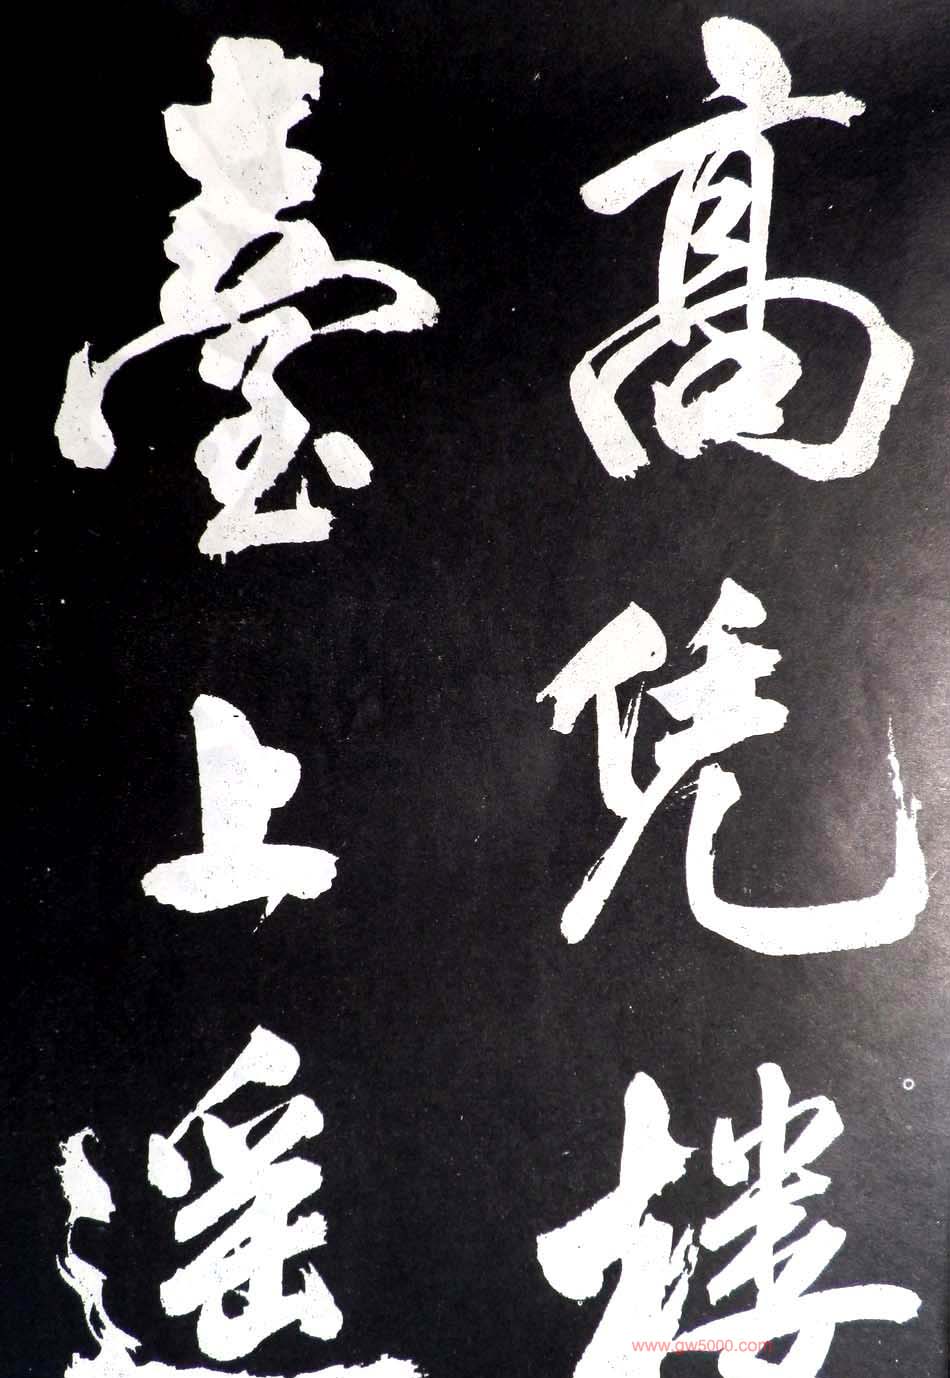 高凭楼
臺上遥
www.gw5000.com